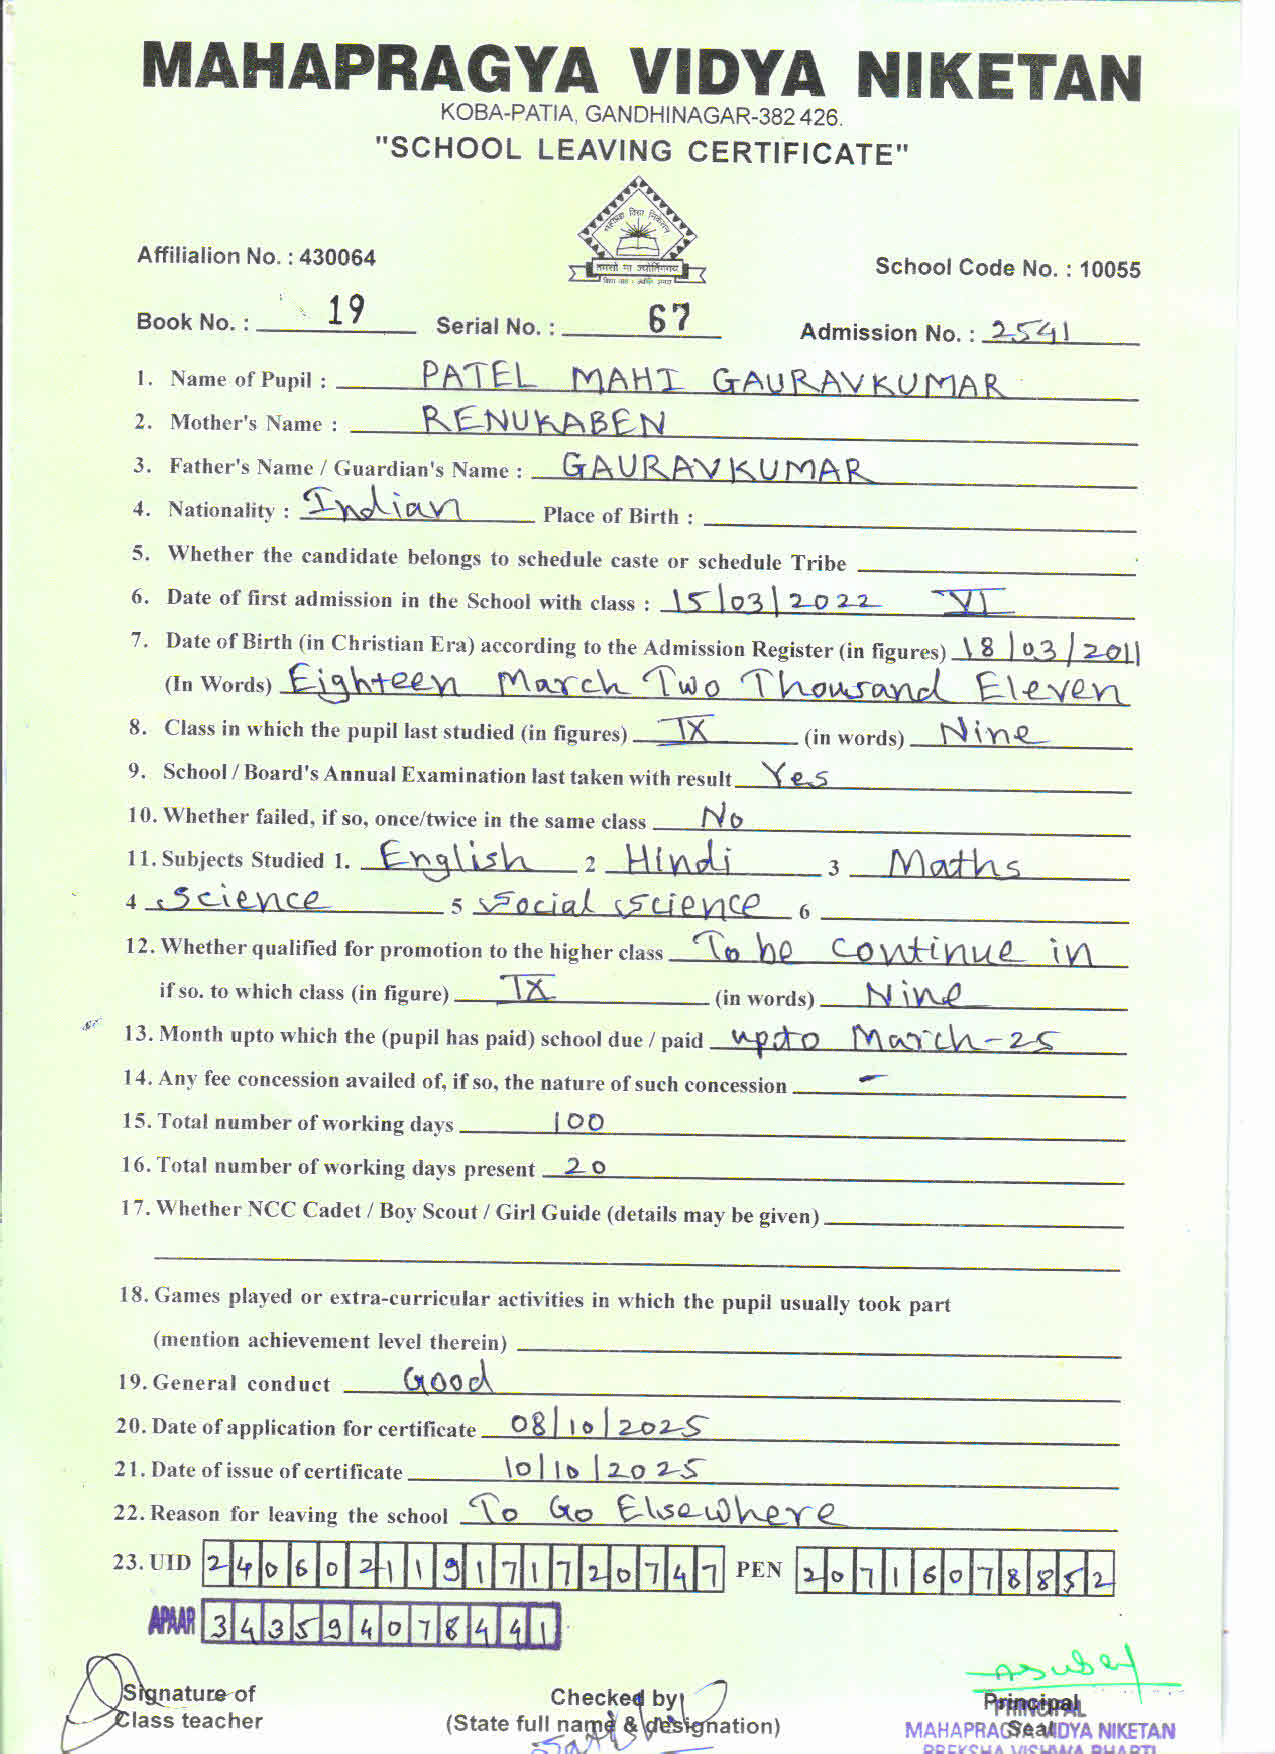 MAHAPRAGYA VIDYA NIKETAN
KOBA-PATIA, GANDHINAGAR-382 426.
"SCHOOL LEAVING CERTIFICATE"
महाप्रज्ञ विद्या निकेतन
Affilialion No. : 430064
तमसो मा ज्योतिर्गमय
School Code No. : 10055
Book No. : 19 Serial No. : 67 Admission No. : 2541
1. Name of Pupil : PATEL MAHI GAURAVKUMAR
2. Mother's Name : RENUKABEN
3. Father's Name / Guardian's Name : GAURAVKUMAR
4. Nationality : Indian Place of Birth :
5. Whether the candidate belongs to schedule caste or schedule Tribe
6. Date of first admission in the School with class : 15/03/2022 VI
7. Date of Birth (in Christian Era) according to the Admission Register (in figures) 18/03/2011
(In Words) Eighteen March Two Thousand Eleven
8. Class in which the pupil last studied (in figures) IX (in words) Nine
9. School / Board's Annual Examination last taken with result Yes
10. Whether failed, if so, once/twice in the same class No
11. Subjects Studied 1. English 2 Hindi 3 Maths
4 Science 5 Social Science 6
12. Whether qualified for promotion to the higher class To be continue in
if so. to which class (in figure) IX (in words) Nine
13. Month upto which the (pupil has paid) school due / paid upto March-25
14. Any fee concession availed of, if so, the nature of such concession -
15. Total number of working days 100
16. Total number of working days present 20
17. Whether NCC Cadet / Boy Scout / Girl Guide (details may be given)
18. Games played or extra-curricular activities in which the pupil usually took part
(mention achievement level therein)
19. General conduct Good
20. Date of application for certificate 08/10/2025
21. Date of issue of certificate 10/10/2025
22. Reason for leaving the school To Go Elsewhere
23. UID 240602119171720747 PEN 20716078852
APAAR 343594078441
Signature of
Class teacher
Checked by
(State full name & designation)
Principal
Seal
PRINCIPAL
MAHAPRAGYA VIDYA NIKETAN
PREKSHA VISHWA BHARTI